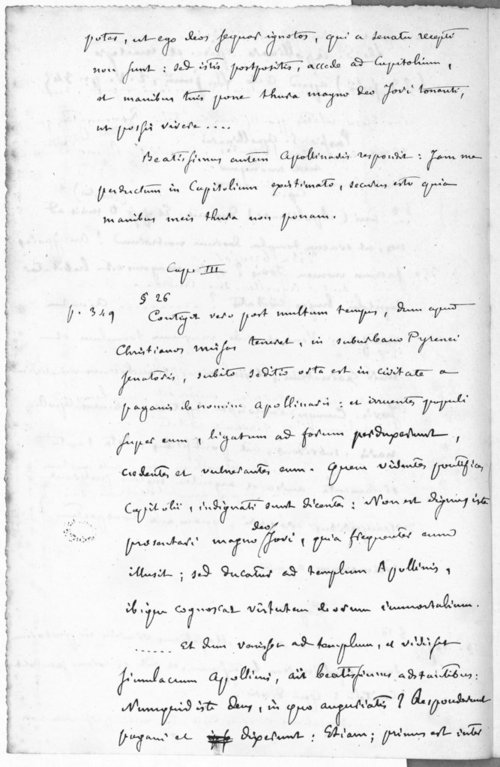 potes, ut ego deos sequar ignotos, qui a senatu recepti
non sunt: sed istis postpositis, accede ad Capitolium,
et manibus tuis pone thura magno deo Jovi tonanti,
ut possis vivere ....
Beatissimus autem Apollinaris respondit: Jam me
perductum in Capitolium existimato, securus esto quia
manibus meis thura non ponam.
Cap. III
§ 26
p. 349 Contigit vero post multum tempus, dum apud
Christianos missas teneret, in suburbano Pyrenei
senatoris, subito seditio orta est in civitate a
paganis de nomine Apollinaris: et irruentes populi
super eum, ligatum ad forum perduxerunt,
cedentes et vulnerantes eum. Quem videntes pontifices
Capitolii, indignati sunt dicentes: Non est dignus iste
presentari magno deo Jovi, quia frequenter eum
illusit; sed ducatur ad templum Apollinis,
ibique cognoscat virtutem deorum immortalium.
...... Et dum venisset ad templum, et vidisset
simulacrum Apollinis, ait beatissimus adstantibus:
Numquid iste deus, in quo auguriatis? Responderunt
pagani et dixerunt: Etiam; primus est inter